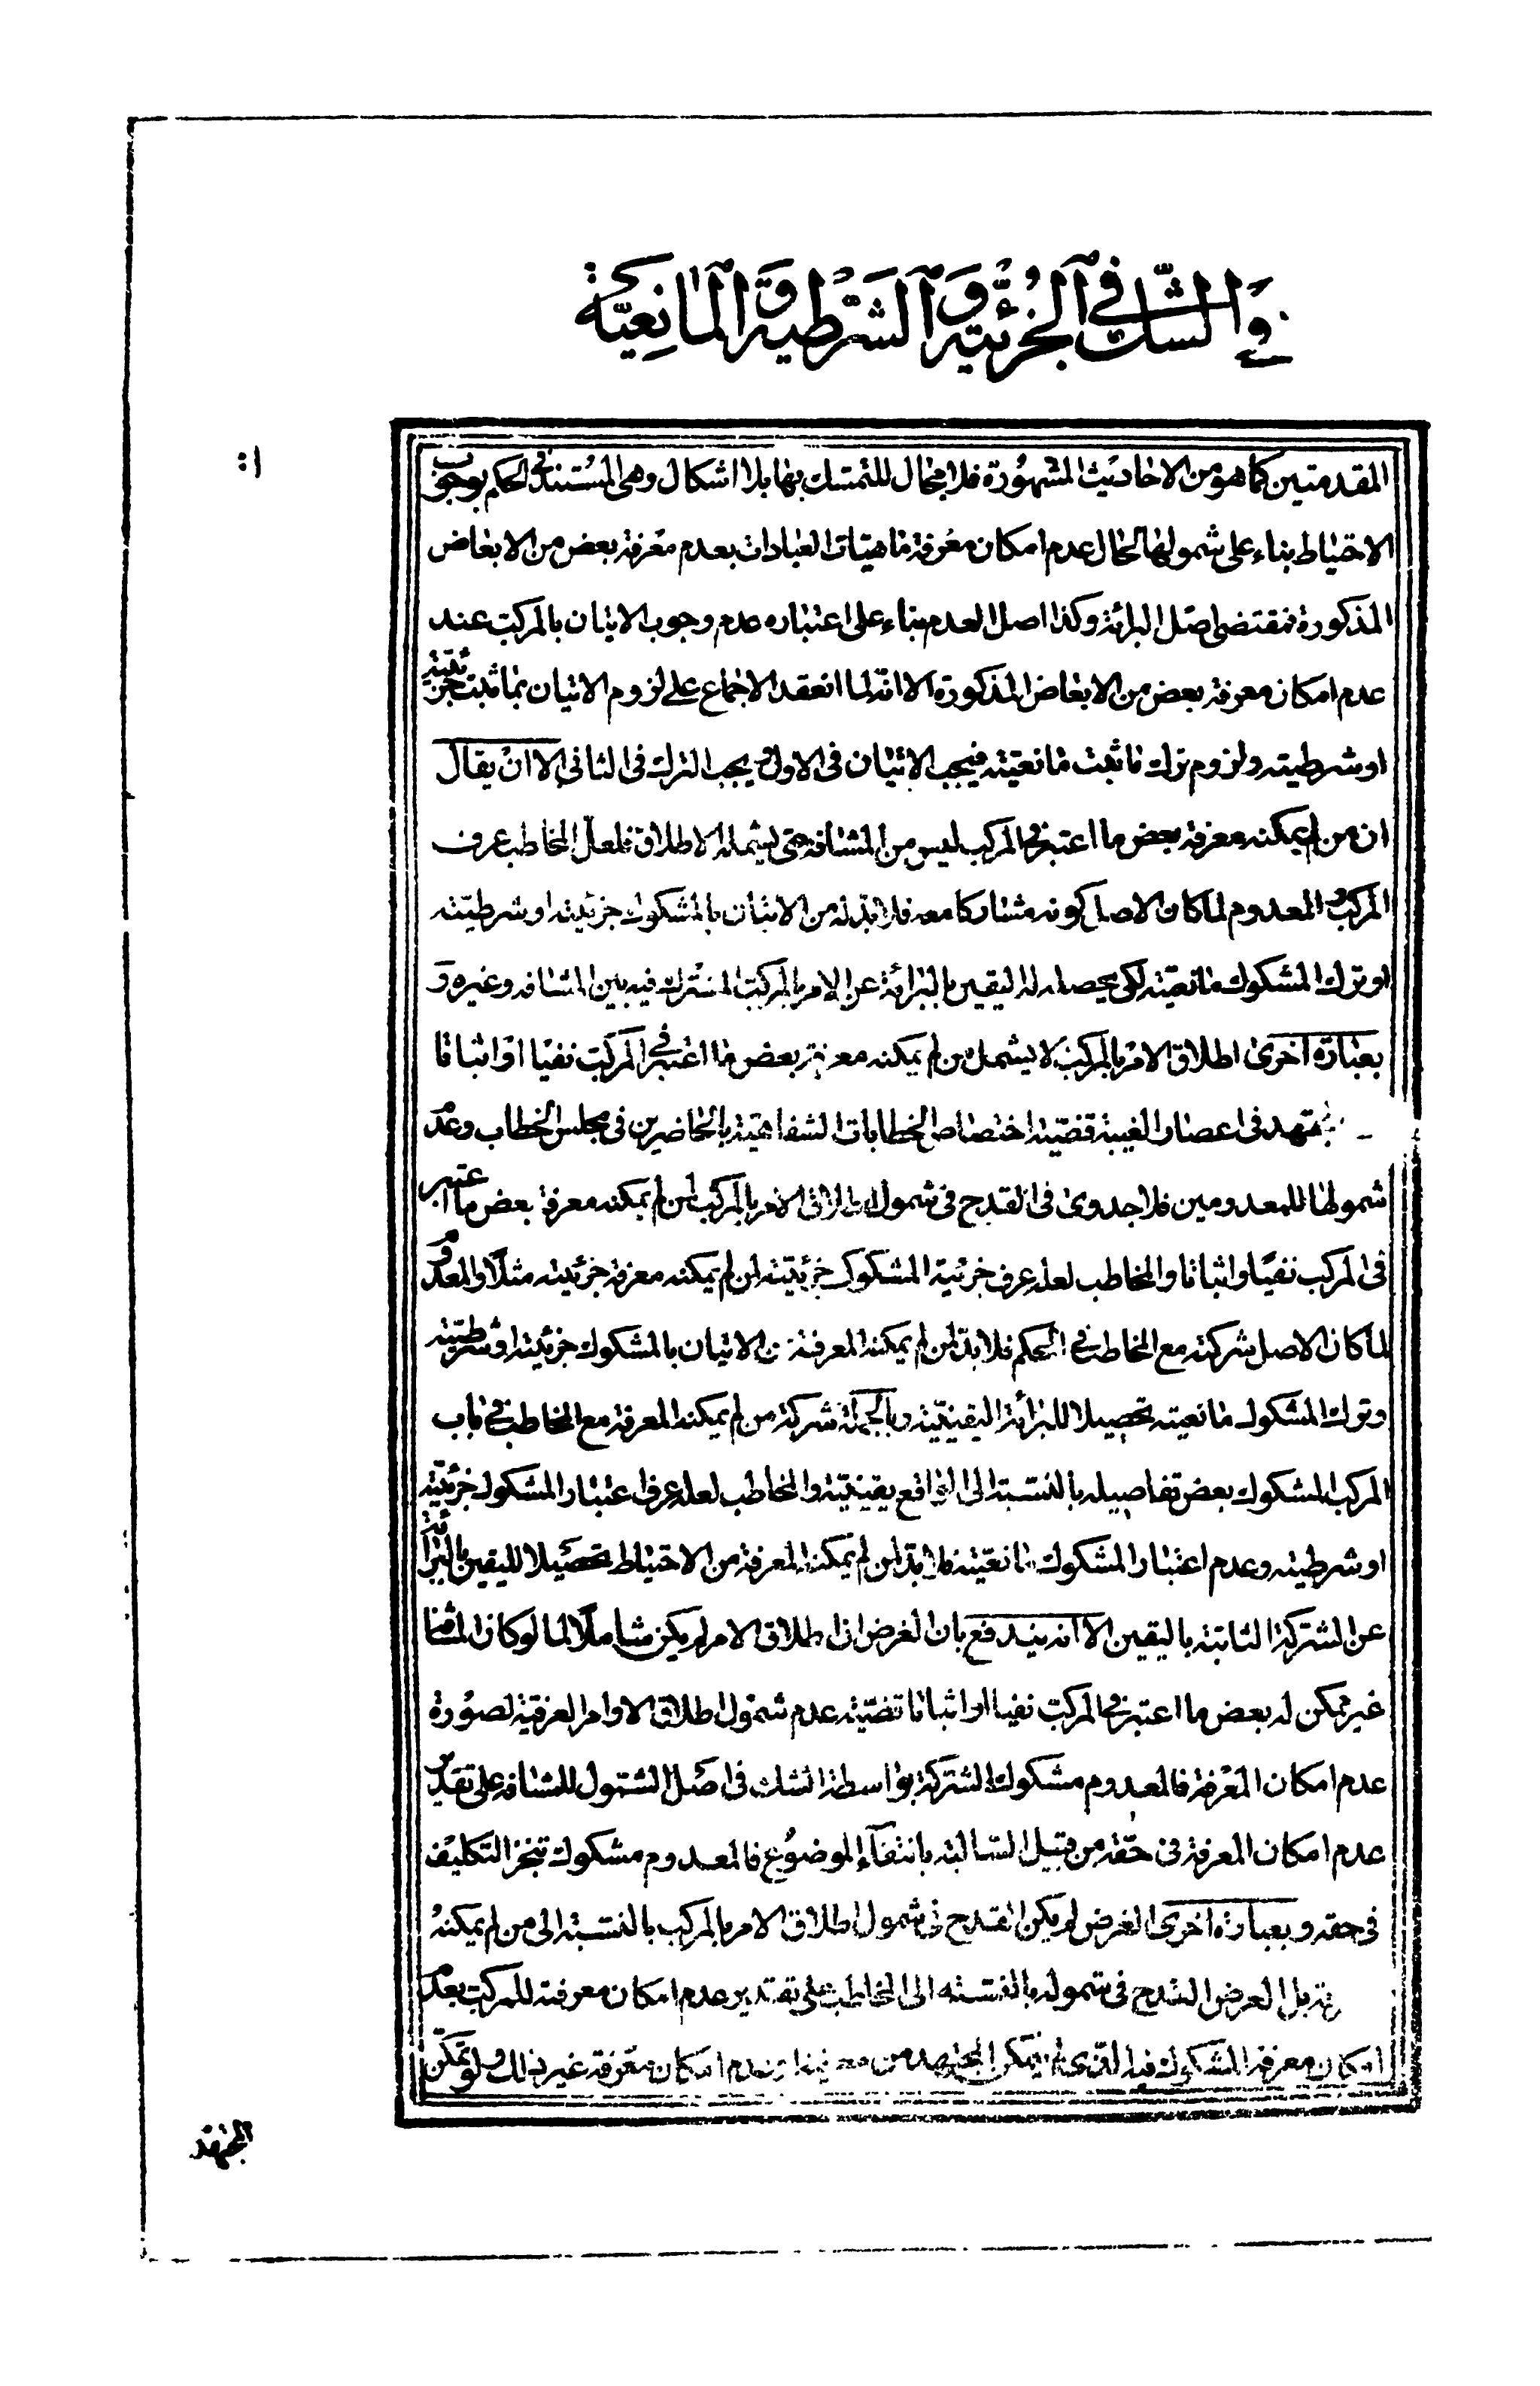 والشك في الجزئية والشرطية والمانعية
المقدمتين كما هو من الاحاديث المشهورة فلا مجال للتمسك بها بلا اشكال وهى المستند فى الحكم بوجوب
الاحتياط بناء على شمولها لحال عدم امكان معرفة ماهيات العبادات بعدم معرفة بعض من الابعاض
المذكورة فمقتضى اصل البرائة وكذا اصل العدم بناء على اعتباره عدم وجوب الاتيان بالمركب عند
عدم امكان معرفة بعض من الابعاض المذكورة الا انه لما انعقد الاجماع على لزوم الاتيان بما ثبت جزئيته
او شرطيته ولزوم ترك ما ثبت مانعيته فيجب الاتيان فى الاول ويجب الترك فى الثانى الا ان يقال
ان من لم يمكنه معرفة بعض ما اعتبر فى المركب ليس من المشافه حتى يشمله الاطلاق فلعل المخاطب عرف
المركب والمعدوم لما كان الاصل كونه مشاركا معه فلا بد له من الاتيان بالمشكوك جزئيته او شرطيته
او ترك المشكوك مانعيته لكى يحصل له اليقين بالبرائة عن الامر بالمركب المشترك فيه بين المشافه وغيره و
بعبارة اخرى اطلاق الامر بالمركب لا يشمل من لم يمكنه معرفة بعض ما اعتبر فى المركب نفيا او اثباتا
فى اعصار الغيبة قضية اختصاص الخطابات الشفاهية بالحاضرين فى مجلس الخطاب وعدم
شمولها للمعدومين فلا جدوى فى القدح فى شمول اطلاق الامر بالمركب لمن لم يمكنه معرفة بعض ما اعتبر
فى المركب نفيا او اثباتا والمخاطب لعله عرف جزئية المشكوك جزئيته لمن لم يمكنه معرفة جزئيته مثلا والمعدوم
لما كان الاصل شركته مع المخاطب فى الحكم فلا بد لمن لم يمكنه المعرفة من الاتيان بالمشكوك جزئيته او شرطيته
وترك المشكوك مانعيته تحصيلا للبرائة اليقينية وبالجملة شركة من لم يمكنه المعرفة مع المخاطب فى باب
المركب المشكوك بعض تفاصيله بالنسبة الى الواقع يقينية والمخاطب لعله عرف اعتبار المشكوك جزئيته
او شرطيته وعدم اعتبار المشكوك مانعيته فلا بد لمن لم يمكنه المعرفة من الاحتياط تحصيلا لليقين بالبرائة
عن الشركة الثابتة باليقين الا انه يندفع بان الغرض ان اطلاق الامر لم يكن شاملا لما لو كان المشافه
غير ممكن له بعض ما اعتبر فى المركب نفيا او اثباتا قضية عدم شمول اطلاق الاوامر العرفية لصورة
عدم امكان المعرفة فالمعدوم مشكوك الشركة بواسطة الشك فى اصل الشمول للمشافه على تقدير
عدم امكان المعرفة فى حقه من قبيل السالبة بانتفاء الموضوع فالمعدوم مشكوك تنجز التكليف
فى حقه وبعبارة اخرى الغرض لم يكن القدح فى شمول اطلاق الامر بالمركب بالنسبة الى من لم يمكنه
بل الغرض القدح فى شموله بالنسبة الى المخاطب على تقدير عدم امكان معرفة للمركب بعدم
امكان معرفة المشكوك فيه الذى لم يتمكن المجتهد من معرفته وعدم امكان معرفة غير ذلك ولو تمكن
المجتهد